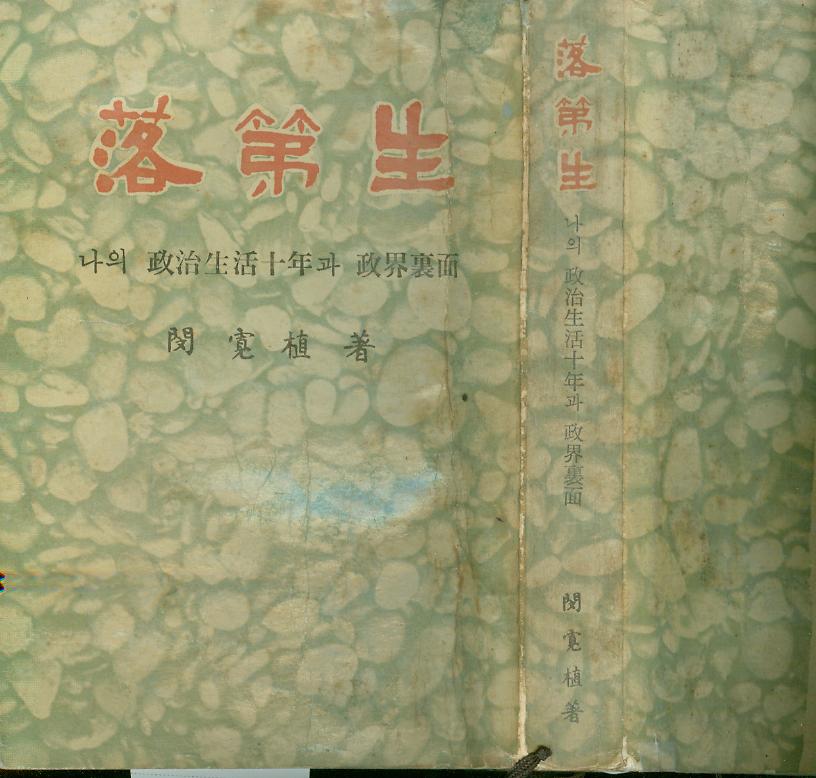 落第生
나의 政治生活十年과 政界裏面
閔寬植 著
落第生
나의 政治生活十年과 政界裏面
閔寬植 著